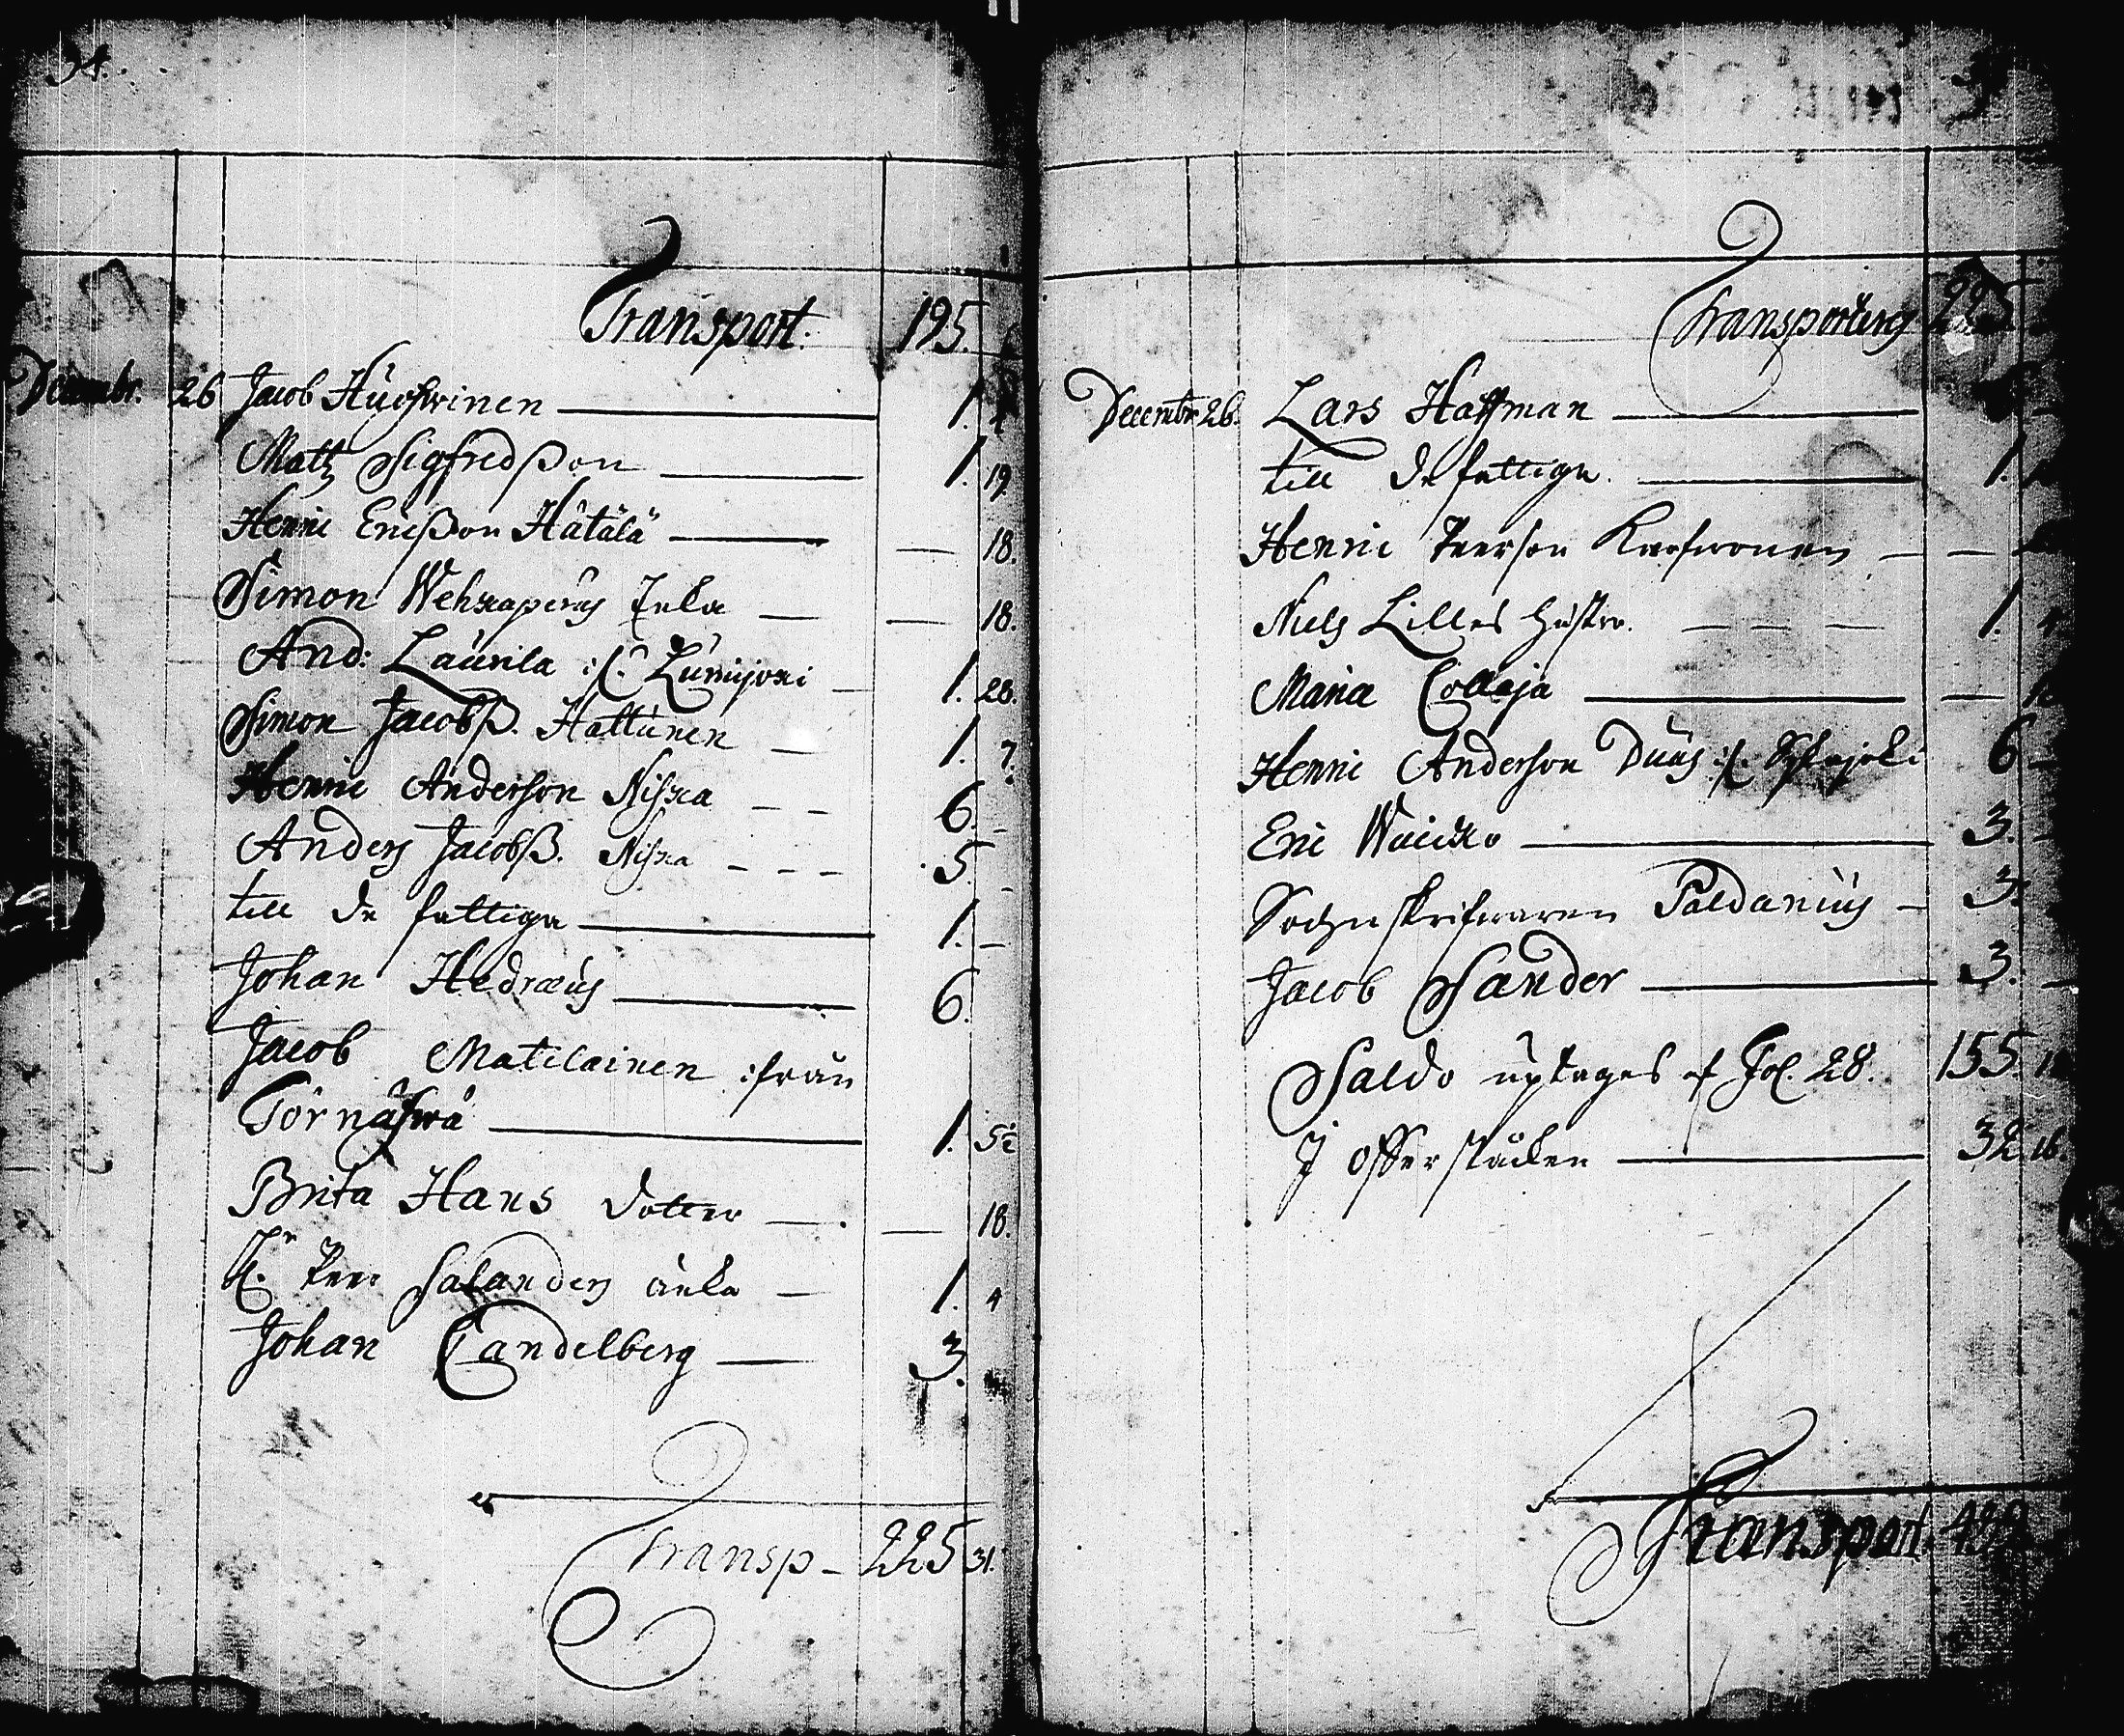 34.
Transport. 195.
Decembr. 26 Jacob Huofwinen 1.
Matz Sigfredßon 1. 19.
Henric Ericßon Hätälä 18.
Simon Wehkaperus Enka 18.
And: Laurila :/: Lumijoki 1. 28.
Simon Jacobß. Hattunen 1. 7.
Henric Anderson Niska 6.
Anders Jacobß. Niska 5
till de fattiga 1.
Johan Hedræus 6.
Jacob Matilainen ifrån
Törnäfwä 1. 5½
Brita Hans dotter 18.
Peer Salanders änka 1. 4
Johan Candelberg 3.
Transp 225 31.
Transporteras 225
Decembr 26. Lars Haffman
till de fattiga. 1.
Henric Peerson
Niels Lilles hustro. 1.
Maria Collaja
Henric Anderson Duus 6
Eric Waicko 3.
Sochneskrifwaren Paldanius 3.
Jacob Sander 3.
Saldo uptages af Fol. 28. 155.
J Offerståcken 32. 16.
Transport 432